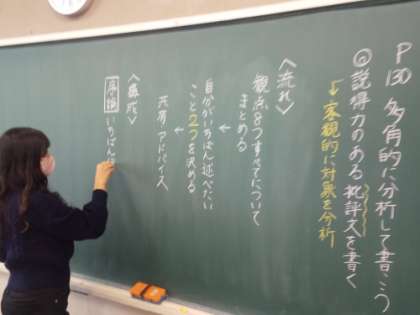 P130 多角的に分析して書こう
◎説得力のある批評文を書く
↓客観的に対象を分析
〈流れ〉
観点8つすべてについて
まとめる
↓
自分がいちばん述べたい
こと2つを決める
↓
共有 アドバイス
〈構成〉
序論 いちばん